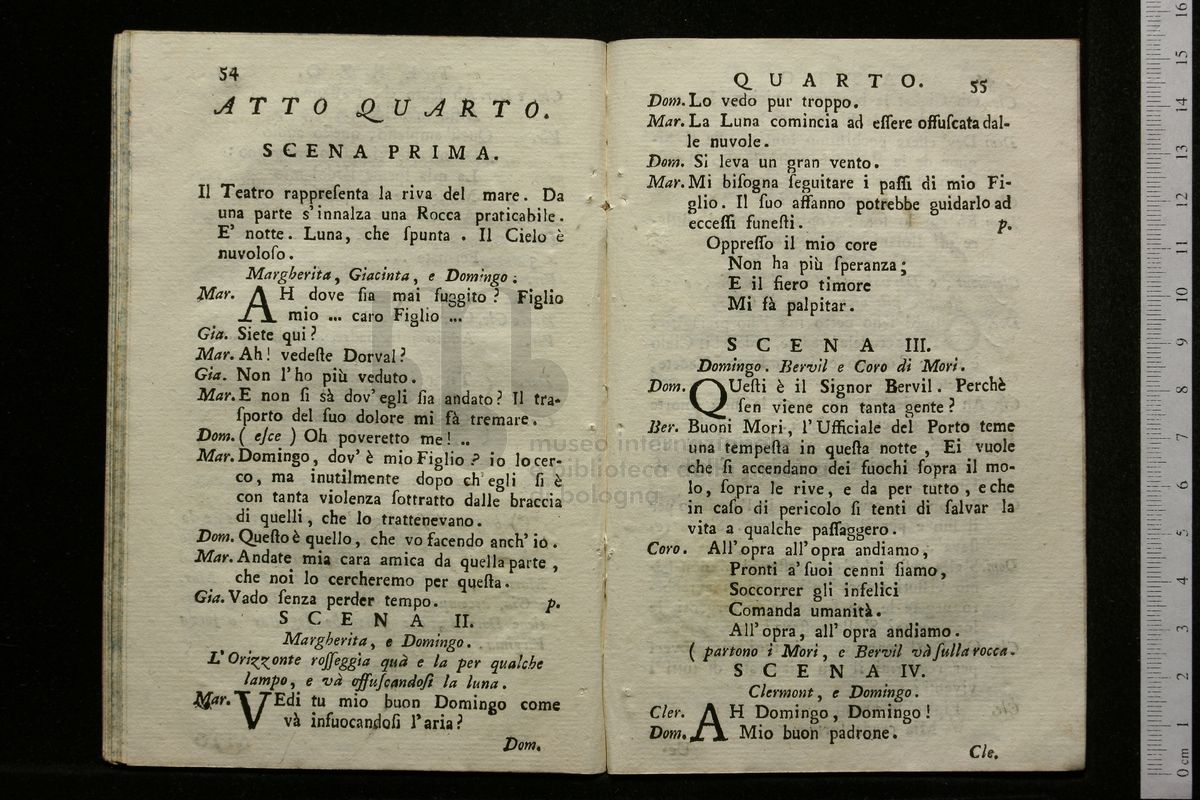 54
ATTO QUARTO.
SCENA PRIMA.
Il Teatro rappreſenta la riva del mare. Da
una parte s'innalza una Rocca praticabile.
E' notte. Luna, che ſpunta . Il Cielo è
nuvoloſo.
Margherita, Giacinta, e Domingo:
Mar. AH dove ſia mai fuggito? Figlio
mio ... caro Figlio ...
Gia. Siete qui?
Mar. Ah! vedeſte Dorval?
Gia. Non l'ho più veduto.
Mar. E non ſi sà dov'egli ſia andato? Il tra-
ſporto del ſuo dolore mi fà tremare.
Dom. ( eſce ) Oh poveretto me! ..
Mar. Domingo, dov'è mio Figlio? io lo cer-
co, ma inutilmente dopo ch'egli ſi è
con tanta violenza ſottratto dalle braccia
di quelli, che lo trattenevano.
Dom. Queſto è quello, che vo facendo anch'io.
Mar. Andate mia cara amica da quella parte,
che noi lo cercheremo per queſta.
Gia. Vado ſenza perder tempo. p.
SCENA II.
Margherita, e Domingo.
L'Orizzonte roſſeggia quà e la per qualche
lampo, e và offuſcandoſi la luna.
Mar. VEdi tu mio buon Domingo come
và infuocandoſi l'aria?
Dom.
QUARTO. 55
Dom. Lo vedo pur troppo.
Mar. La Luna comincia ad eſſere offuſcata dal-
le nuvole.
Dom. Si leva un gran vento.
Mar. Mi biſogna ſeguitare i paſſi di mio Fi-
glio. Il ſuo affanno potrebbe guidarlo ad
ecceſſi funeſti. p.
Oppreſſo il mio core
Non ha più ſperanza;
E il fiero timore
Mi fà palpitar.
SCENA III.
Domingo. Bervil e Coro di Mori.
Dom. QUeſti è il Signor Bervil. Perchè
ſen viene con tanta gente?
Ber. Buoni Mori, l'Ufficiale del Porto teme
una tempeſta in queſta notte, Ei vuole
che ſi accendano dei fuochi ſopra il mo-
lo, ſopra le rive, e da per tutto, e che
in caſo di pericolo ſi tenti di ſalvar la
vita a qualche paſſaggero.
Coro. All'opra all'opra andiamo,
Pronti a'ſuoi cenni ſiamo,
Soccorrer gli infelici
Comanda umanità.
All'opra, all'opra andiamo.
( partono i Mori, e Bervil và ſulla rocca.
SCENA IV.
Clermont, e Domingo.
Cler. AH Domingo, Domingo!
Dom. Mio buon padrone.
Cle.